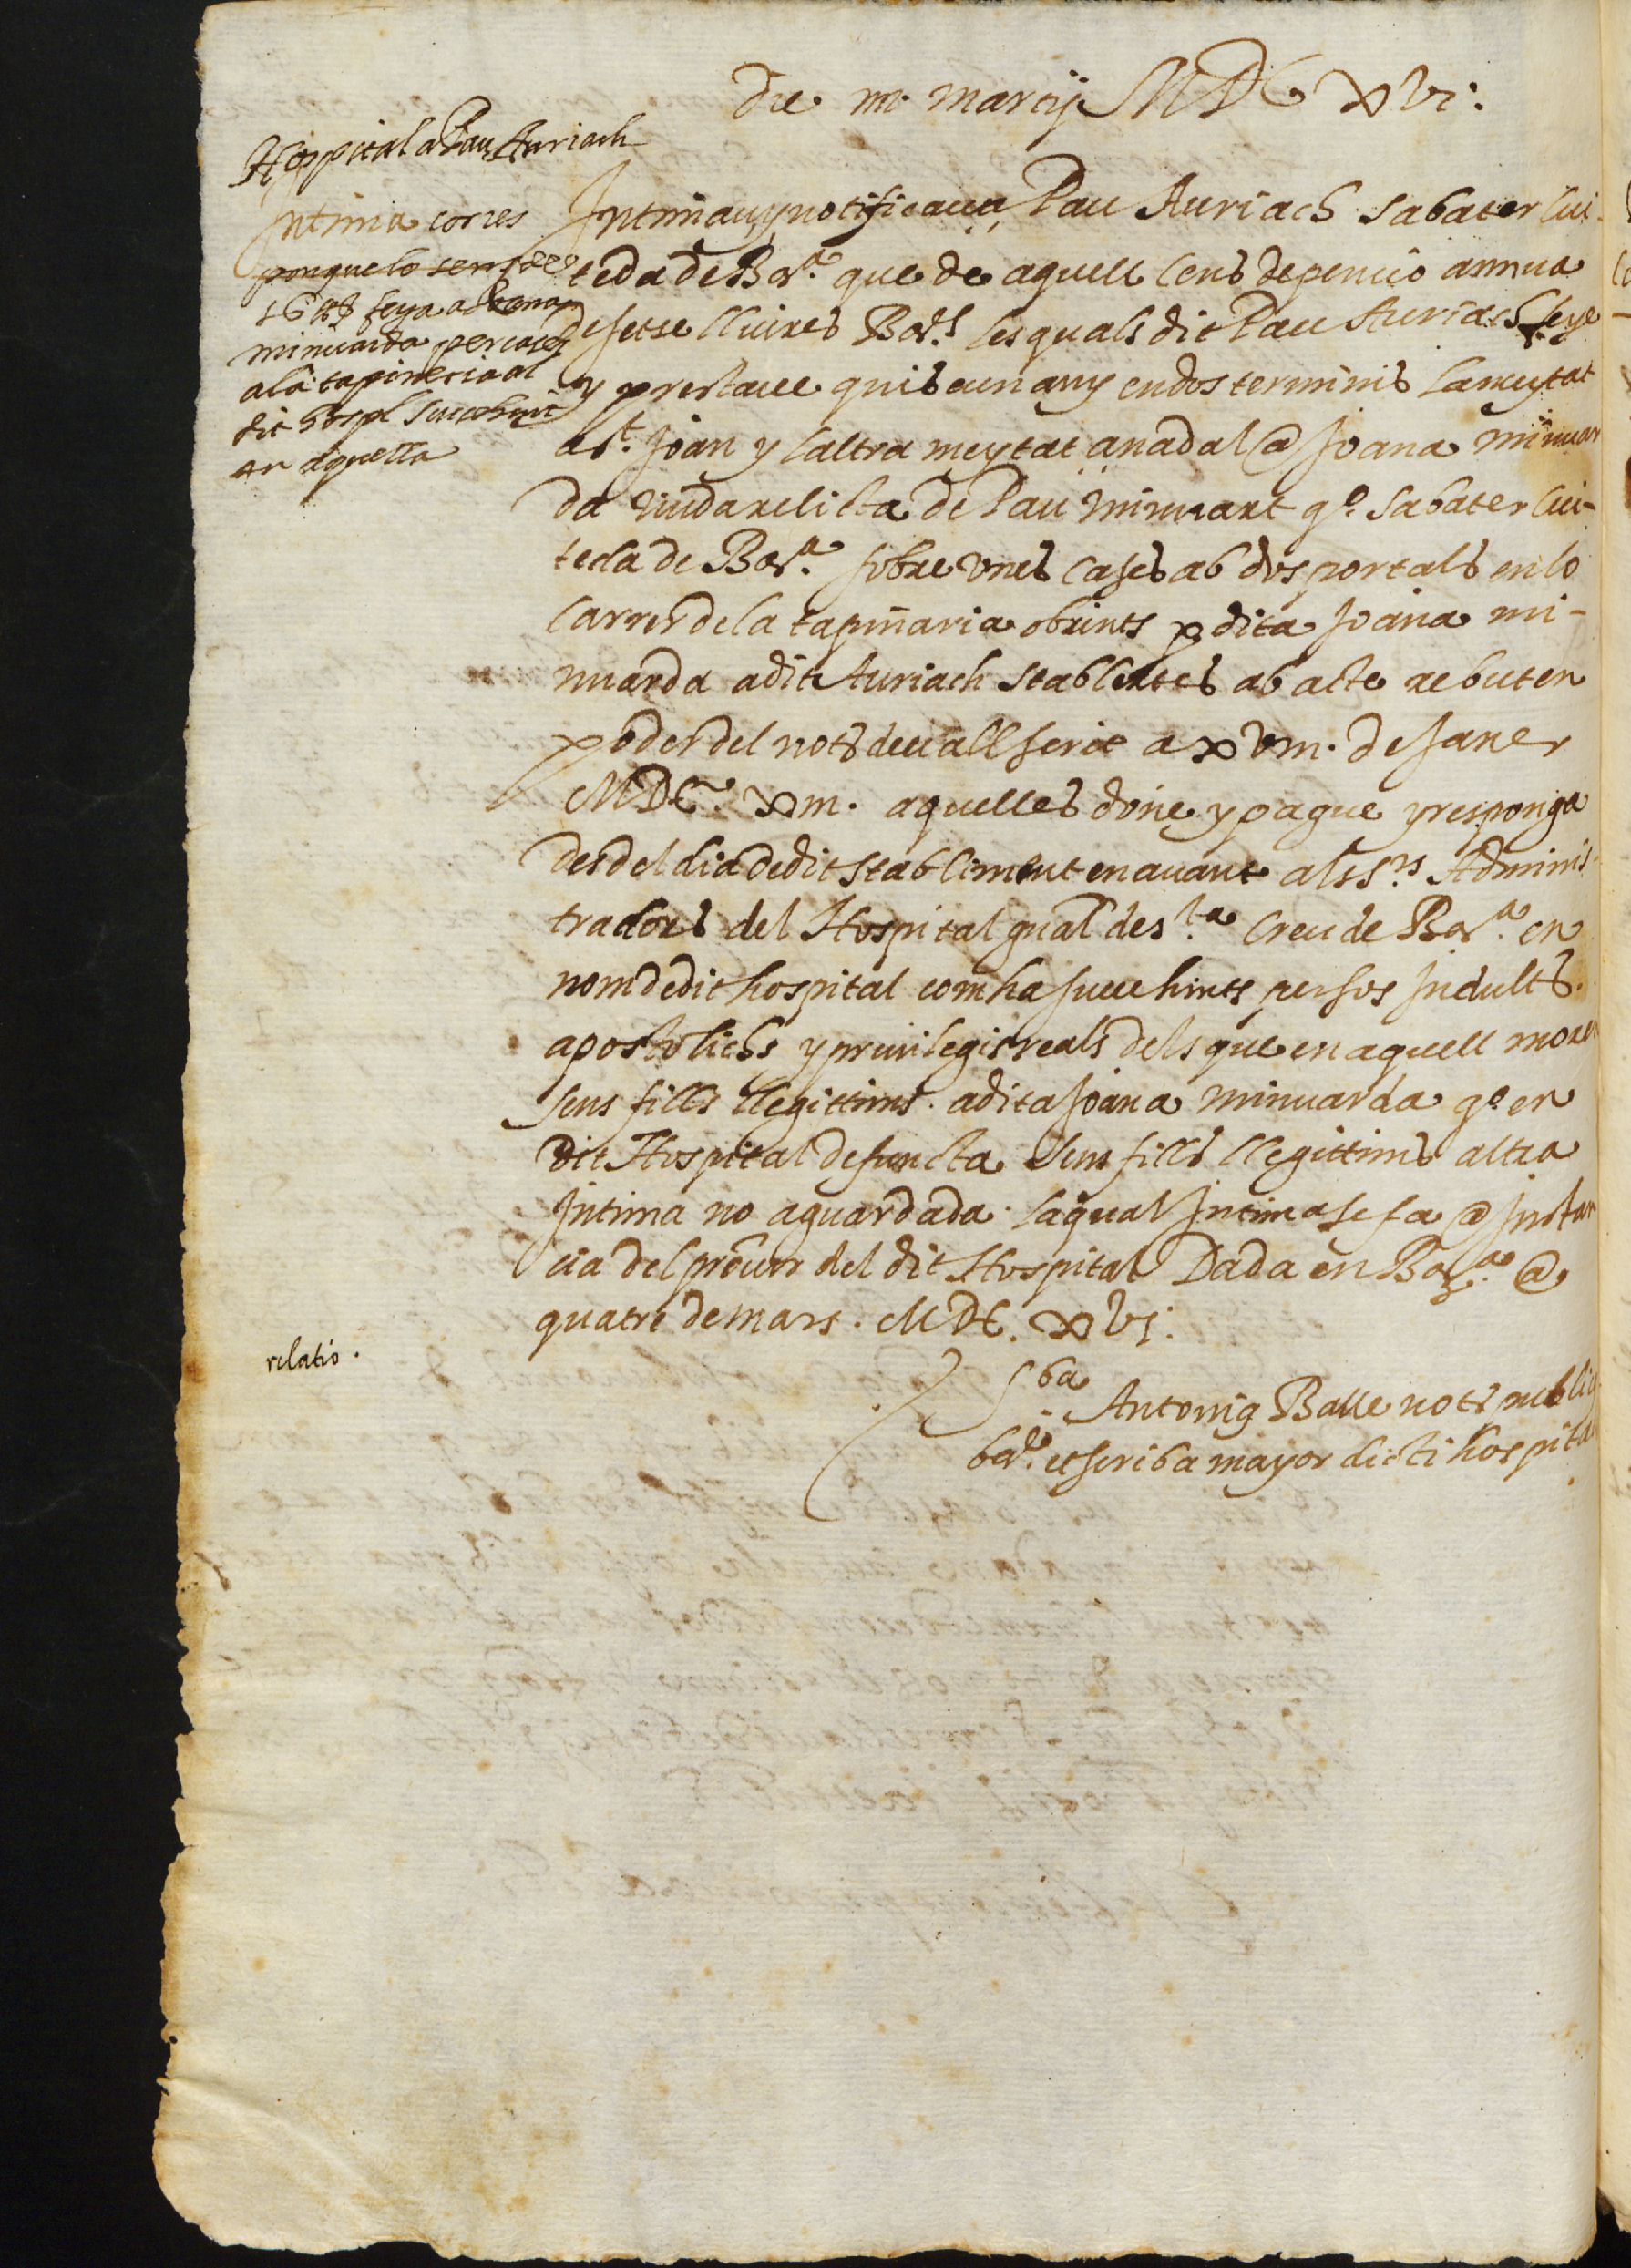 Die iiii marcij MDC xvi:
Hospital a Pau Auriach
Intima corres
ponguelo sens de
16 ll feya a Joana
minuarda per cases
a la tapineria al
dit hospl succehint
an aquella
Intimau y notificau a Pau Auriach sabater ciu-
tedà de Bara. que de aquell cens de pencio annua
de setse lliures Bars. les quals dit Pau Auriach feya
y prestave quiscun any en dos terminis la meytat
a St. Joan y laltra meytat a nadal @ Joana minuar
da viuda relicta de Pau minuart qo. sabater ciu-
teda de Bara. sobre unes cases ab dos portals en lo
carrer de la tapinaria obrints p dita Joana mi-
nuarda a dit Auriach stablertes ab acte rebut en
poder del nots. devall scrit a xviii. de Janer
MDC. xiii. aquelles done y pague y responga
des del dia de dit stabliment en avant als Srs. Adminis
tradors del Hospital gnal de Sta. Creu de Bara. en
nom de dit hospital com ha succehints per sos Indults
apostolichs y privilegis reals dels que en aquell moren
sens fills llegittims. a dita Joana minuarda qo en
dit Hospital defuncta sens fills llegittims altra
Intima no aguardada. la qual Intima se fa @ Instan
cia del procur del dit Hospital Dada en Bara. @
quatre de mars. MDC. xvi:
relatio.
Antonig Balle nots public
bar. et scriba mayor dicti hospita